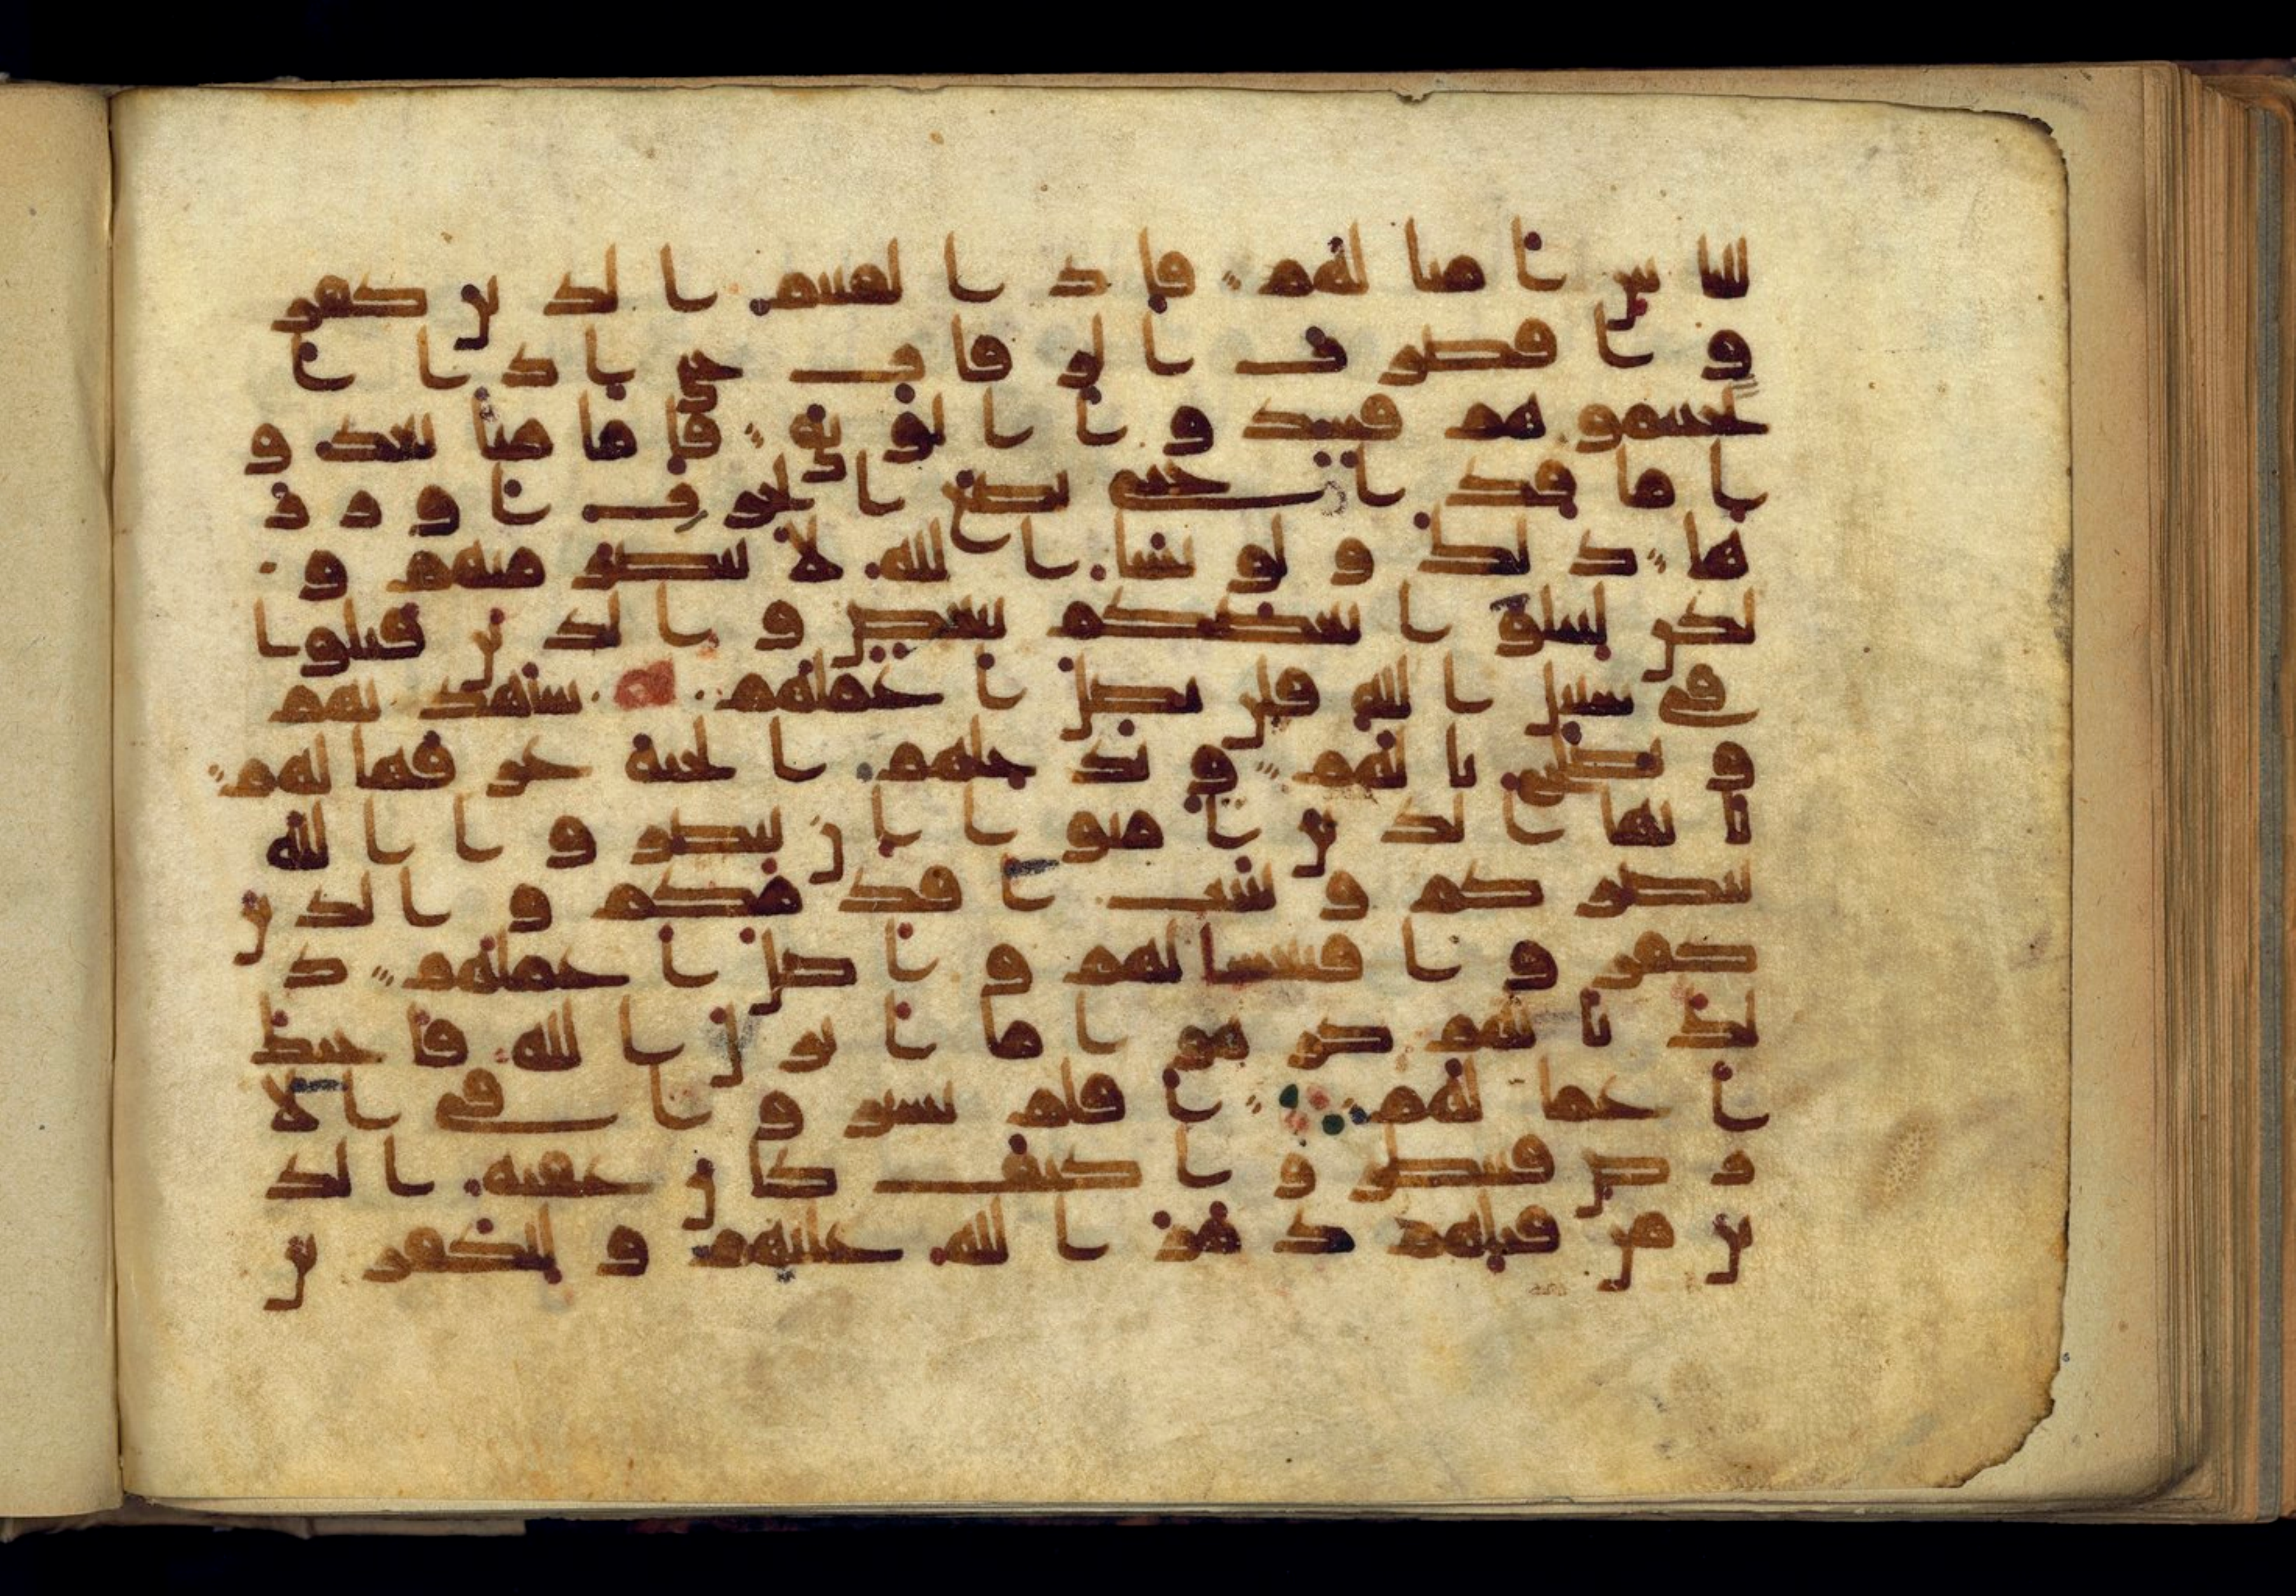 للناس امثالهم فاذا لقيتم الذين كفر
وا فضرب الرقاب حتى اذا ا
ثخنتموهم فشدوا الوثاق فاما منا بعد و
اما فدا حتى تضع الحرب اوزر
ها ذلك ولو يشا الله لانتصر منهم و
لكن ليبلوا بعضكم ببعض والذين قتلوا
في سبيل الله فلن يضل اعملهم سيهديهم
ويصلح بالهم ويدخلهم الجنة عرفها لهم
يايها الذين امنوا ان تنصروا الله
ينصركم ويثبت اقدمكم والذين
كفروا فتعسا لهم واضل اعملهم ذ
لك بانهم كرهوا ما انزل الله فاحبط
اعمالهم افلم يسيروا في الا
رض فينظروا كيف كان عقبة الذ
ين من قبلهم دمر الله عليهم وللكفرين